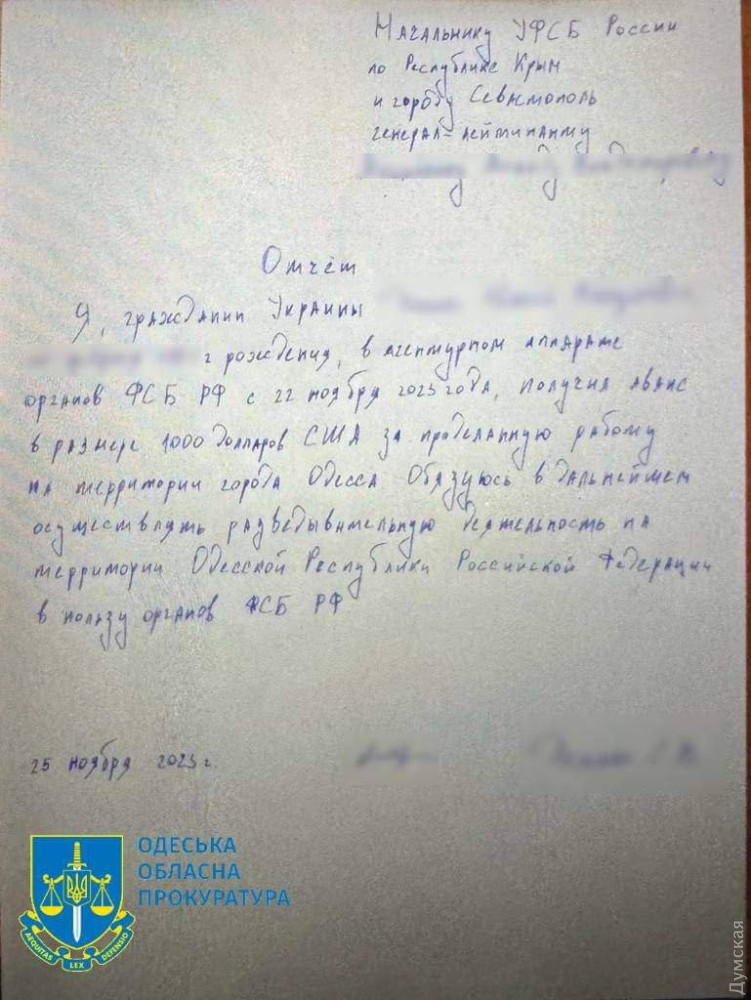 Начальнику УФСБ России
по Республике Крым
и городу Севастополь
генерал-лейтинанту
Отчёт
Я, гражданин Украины
г рождения, в агентурном аппарате
органов ФСБ РФ с 22 ноября 2023 года, получил аванс
в размере 1000 долларов США за проделанную работу
на территории города Одесса Обязуюсь в дальнейшем
осуществлять разведывательную деятельность на
территории Одесской Республики Российской Федерации
в пользу органов ФСБ РФ
25 ноября 2023 г.
ОДЕСЬКА
ОБЛАСНА
ПРОКУРАТУРА
AEQUITAS
LEX
DEFENSIO
Думская